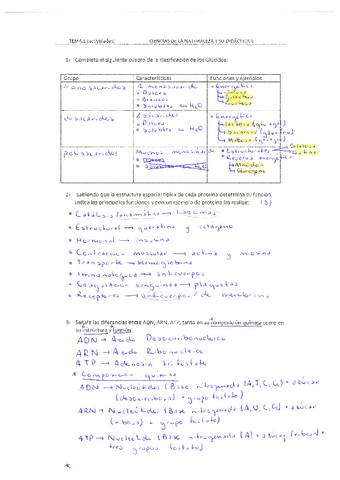 TEMA 1 (actividades) CIENCIAS DE LA NATURALEZA Y SU DIDÁCTICA II
1- Completa el siguiente cuadro de la clasificación de los Glúcidos:
Grupo Características Funciones y ejemplos
monosacáridos 1 monosacárido • Energética
• Dulces
• Blancos
• Solubles en H2O
disacáridos 2 sacáridos • Energética
• Dulces • Lactosa (glu+gal)
• Solubles en H2O • Sacarosa (glu+fru)
• Maltosa (glu+glu)
polisacáridos Muchos monosacáridos • Estructurales Celulosa
Quitina
• Solubles en H2O • Reserva energética
Almidón
2- Sabiendo que la estructura espacial típica de cada proteína determina su función.
Indica las principales funciones y pon un ejemplo de proteína las realiza:
• Catálisis enzimática → Lisosimas
• Estructural → queratina y colágeno
• Hormonal → insulina
• Contracción muscular → actina y miosina
• Transporte → Hemoglobina
• Inmunológica → anticuerpos
• Coagulación sanguínea → plaquetas
• Receptores → anticuerpos de membrana
3- Señala las diferencias entre ADN, ARN, ATP, tanto en su composición química como en
su estructura y función.
ADN → Ácido Desoxirribonucleico
ARN → Ácido Ribonucleico
ATP → Adenosin trifosfato
• Composición química
ADN → Nucleótidos (Base nitrogenada (A,T,C,G) + azúcar
(desoxirribosa) + grupo fosfato)
ARN → Nucleótidos (Base nitrogenada (A,U,C,G) + azúcar
(ribosa) + grupo fosfato)
ATP → Nucleótido (Base nitrogenada (A) + azúcar (ribosa) +
tres grupos fosfato)